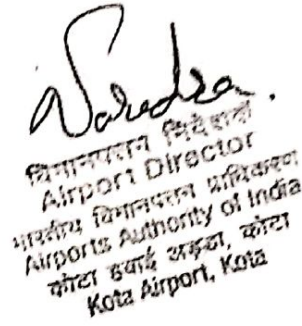 Narendra.
विमानपत्तन निदेशक
Airport Director
भारतीय विमानपत्तन प्राधिकरण
Airports Authority of India
कोटा हवाई अड्डा, कोटा
Kota Airport, Kota